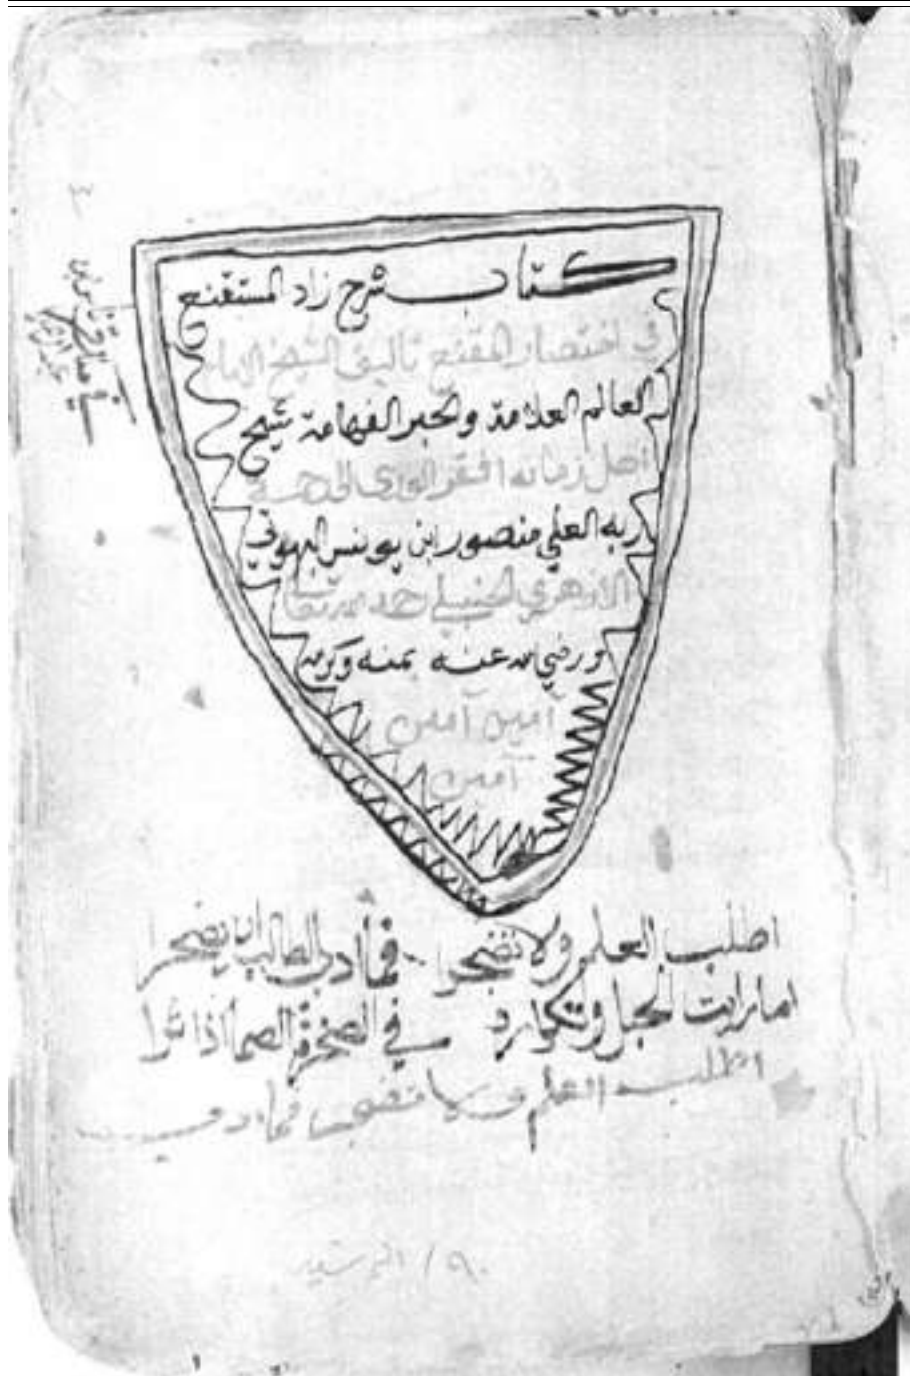 كتاب شرح زاد المستقنع
في اختصار المقنع تاليف الشيخ الامام
العالم العلامة والحبر الفهامة شيخ
اهل زمانه افقر الورى الى رحمة
ربه العلي منصور ابن يونس البهوتي
الازهري الحنبلي رحمه الله تعالى
ورضي الله عنه بمنه وكرمه
امين آمين
آمين
اطلب العلم ولا تضجرا فما ادب الطالب ان يضجرا
اما رايت الحبل وتكراره في الصخرة الصما اذا اثرا
اطلب العلم ولا تضجر